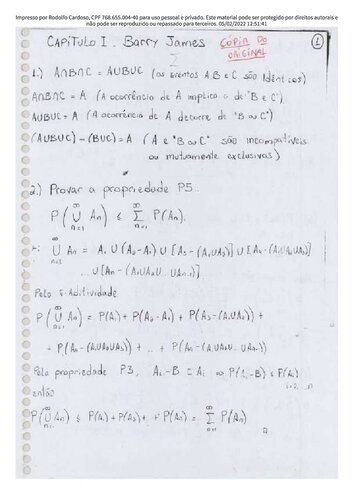 Impresso por Rodolfo Cardoso, CPF 768.655.004-40 para uso pessoal e privado. Este material pode ser protegido por direitos autorais e
não pode ser reproduzido ou repassado para terceiros. 05/02/2022 12:51:41
CAPITULO I . Barry James CÓPIA DO ORIGINAL 1
1.) A∩B∩C = AUBUC (os eventos A B e C são Idênticos)
A∩B∩C = A (A ocorrência de A implica a de "B e C")
AUBUC = A (A ocorrência de A decorre de "B ou C")
(AUBUC) - (BUC) = A (A e "B ou C" são incompatíveis
ou mutuamente exclusivos)
2.) Provar a propriedade P5.
P(∞U n=1 An) ≤ ∞Σ n=1 P(An).
∞U n=1 An = A1 U (A2 - A1) U [A3 - (A1UA2)] U [A4 - (A1UA2UA3)]
... U [An - (A1UA2U... UAn-1)]
Pela σ-Aditividade
P(∞U n=1 An) = P(A1) + P(A2 - A1) + P(A3 - (A1UA2)) +
+ P(A4 - (A1UA2UA3)) + ... + P(An - (A1UA2U... UAn-1))
Pela propriedade P3, Ai - B ⊂ Ai ⇒ P(Ai - B) ≤ P(Ai)
então
P(∞U n=1 An) ≤ P(A1) + P(A2) + ... + P(An) = ∞Σ n=1 P(An)